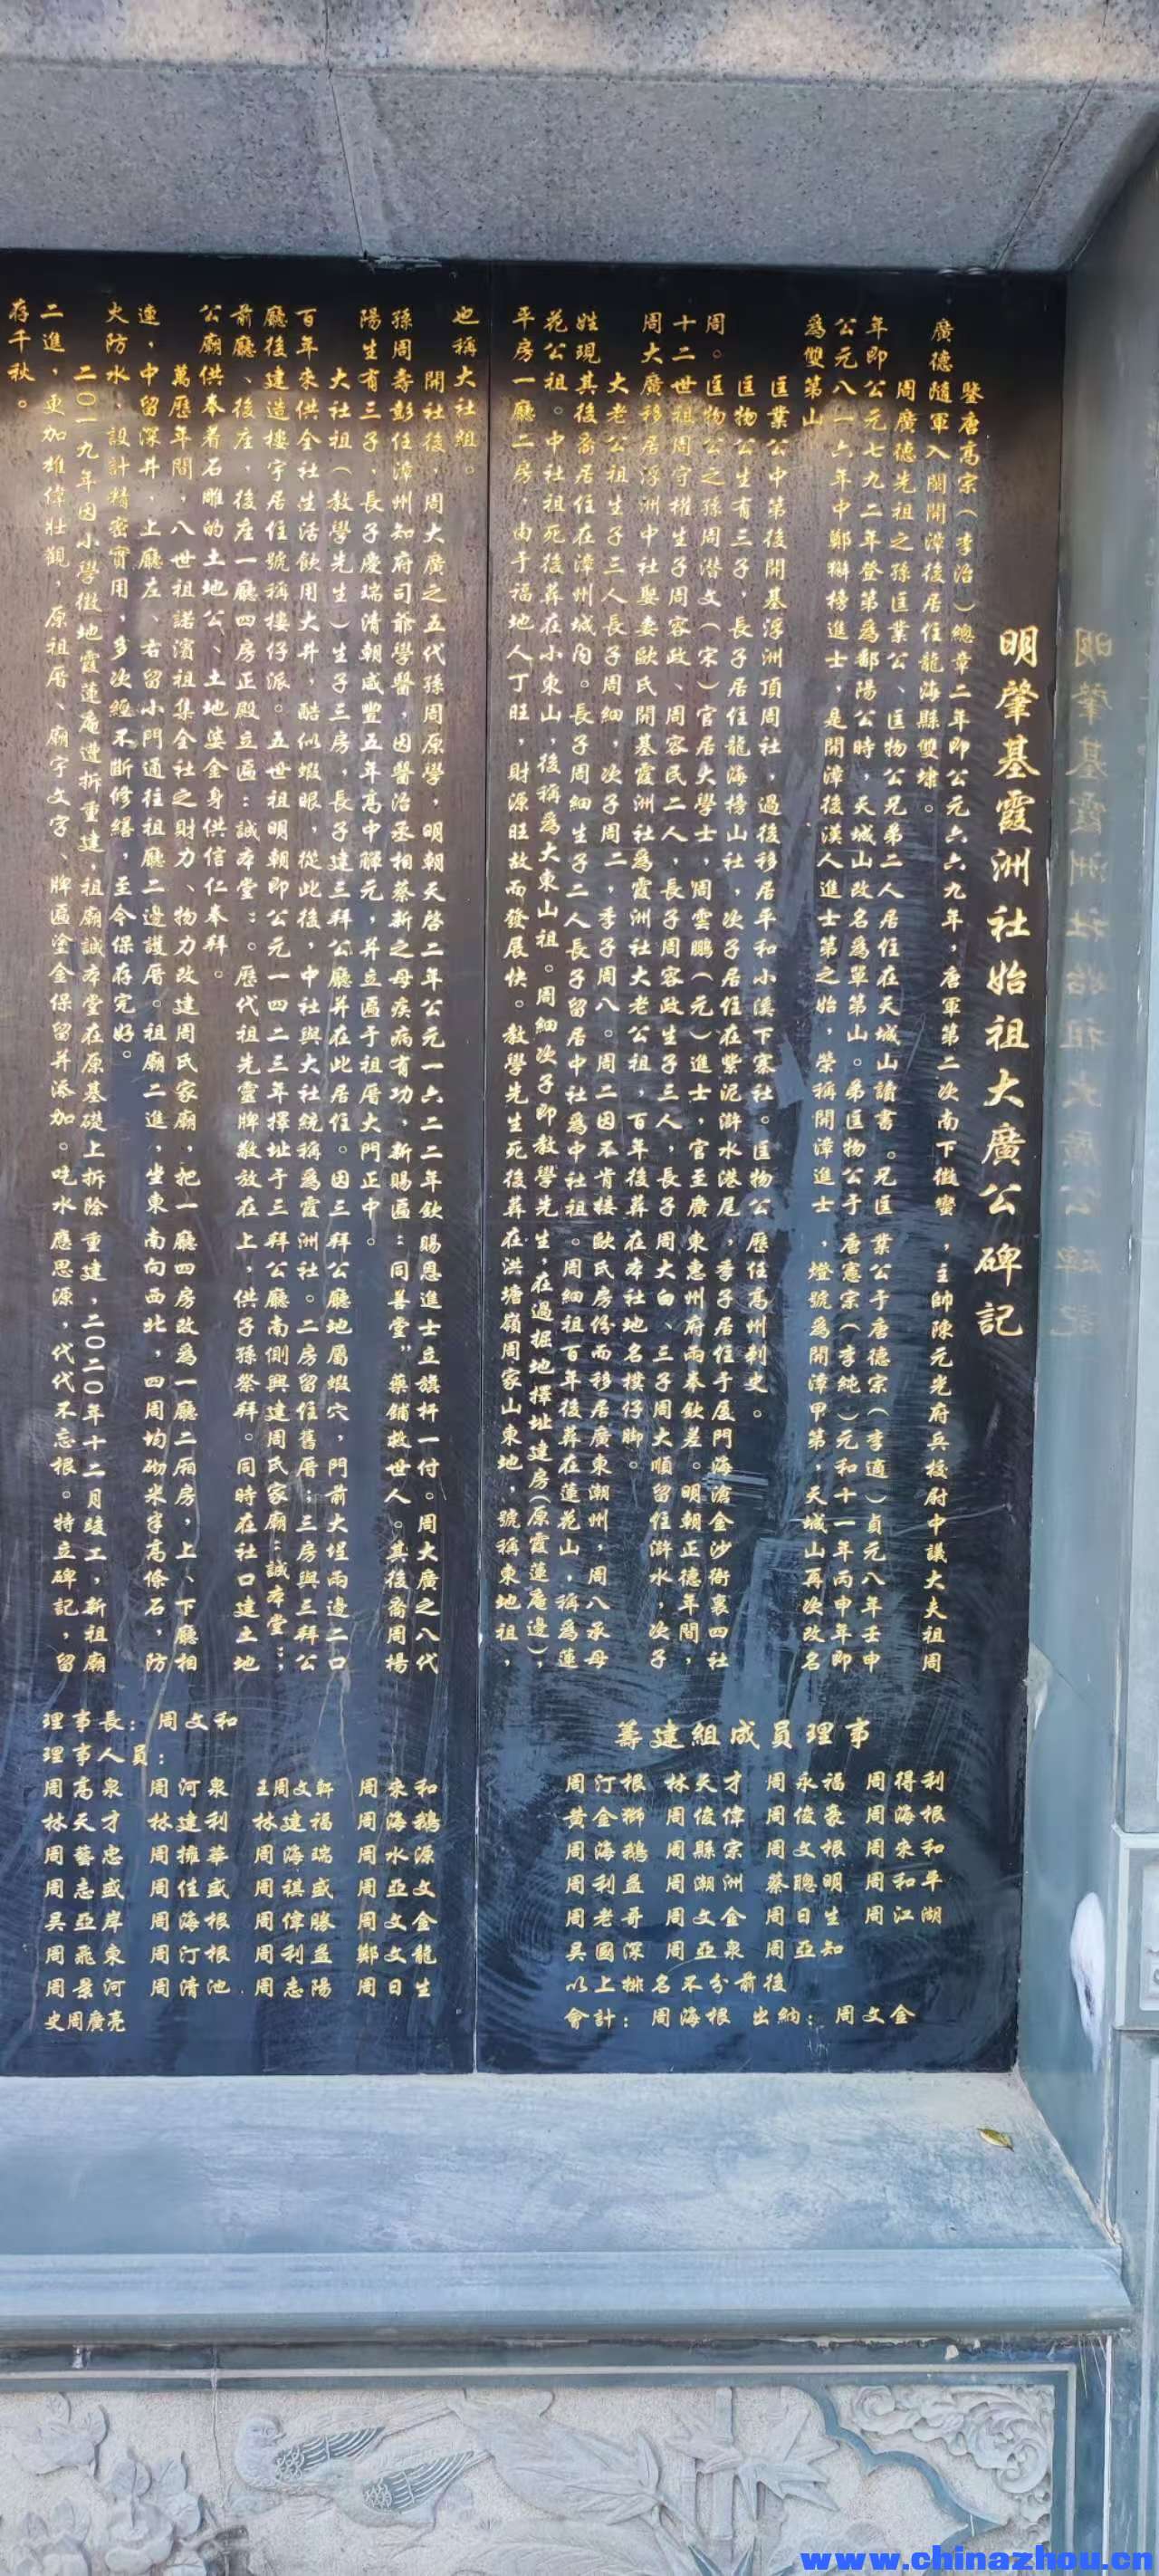 明肇基霞洲社始祖大廣公碑記
鑒唐高宗（李治）總章二年即公元六六九年，唐軍第二次南下徵蠻，主帥陳元光府兵校尉中議大夫祖周
廣德隨軍入閩開漳後居住龍海縣雙埭。
周廣德先祖之孫匡業公、匡物公兄弟二人居住在天城山讀書。兄匡業公于唐德宗（李適）貞元八年壬申
年即公元七九二年登第爲鄱陽公時，天城山改名爲單第山。弟匡物公于唐憲宗（李純）元和十一年丙申年即
公元八一六年中鄭獬榜進士，是開漳後漢人進士第之始，榮稱開漳進士，燈號爲開漳甲第，天城山再次改名
爲雙第山
匡業公中第後開基浮洲頂周社，過後移居平和小溪下寨社。匡物公歷任高州刺史。
匡物公生有三子，長子居住龍海榜山社，次子居住在紫泥滸水港尾，季子居住于厦門海滄金沙衙裏四社
周。匡物公之孫周潜文（宋）官居大學士，周雲鵬（元）進士，官至廣東惠州府兩奉欽差。明朝正德年間，
十二世祖周守權生子周容政、周容民二人，長子周容政生子三人，長子周大白、三子周大順留住滸水，次子
周大廣移居浮洲中社娶妻歐氏開基霞洲社爲霞洲社大老公祖，百年後葬在本社地名樸仔脚。
大老公祖生子三人長子周細，次子周二，季子周八。周二因不肯接歐氏房份而移居廣東潮州，周八承母
姓現其後裔居住在漳州城内。長子周細生子二人長子留居中社爲中社祖。周細祖百年後葬在蓮花山，稱爲蓮
花公祖。中社祖死後葬在小東山，後稱爲大東山祖。周細次子即教學先生，在過掘地擇址建房（原霞蓮庵邊），
平房一廳二房，由于福地人丁旺，財源旺故而發展快。教學先生死後葬在洪塘嶺周家山東地，號稱東地祖，
也稱大社組。
開社後，周大廣之五代孫周原學，明朝天啓二年公元一六二二年欽賜恩進士立旗杆一付。周大廣之八代
孫周壽彭任漳州知府司爺學醫，因醫治丞相蔡新之母疾病有功，新賜匾：同善堂”藥鋪救世人。其後裔周揚
陽生有三子，長子慶瑞清朝咸豐五年高中解元，并立匾于祖厝大門正中。
大社祖（教學先生）生子三房，長子建三拜公廳并在此居住。因三拜公廳地屬蝦穴，門前大埕兩邊二口
百年來供全社生活飲用大井，酷似蝦眼，從此後，中社與大社統稱爲霞洲社。二房留住舊厝；三房與三拜公
廳後建造樓宇居住號稱樓仔派。五世祖明朝即公元一四二三年擇址于三拜公廳南側興建周氏家廟：誠本堂：；
前廳、後座，後座一廳四房正殿立匾：誠本堂：。歷代祖先靈牌敬放在上，供子孫祭拜。同時在社口建土地
公廟供奉着石雕的土地公、土地婆金身供信仁奉拜。
萬歷年間，八世祖諾濱祖集全社之財力、物力改建周氏家廟，把一廳四房改爲一廳二厢房，上、下廳相
連，中留深井，上廳左、右留小門通往祖廳二邊護厝。祖廟二進，坐東南向西北，四周均砌米字高條石，防
火防水、設計精密實用，多次經不斷修繕，至今保存完好。
二〇一九年因小學徵地霞蓮庵遭拆重建，祖廟誠本堂在原基礎上拆除重建，二〇二〇年十二月竣工，新祖廟
二進，更加雄偉壯觀，原祖厝、廟宇文字、牌匾塗金保留并添加。吃水應思源，代代不忘根。特立碑記，留
存千秋。
籌建組成員理事
周汀根 林天才 周永福 周得利
黄金獅 周俊偉 周俊豪 周海根
周海鵝 周縣宗 周文根 周來和
周利益 周潮洲 蔡聰明 周和平
周老哥 周文金 周日生 周江湖
吴國深 周亞泉 周亞知
以上排名不分前後
會計：周海根 出納：周文金
理事長：周文和
理事人員：
周高泉 周河泉 王周文軒 周來和
林天才 林建利 林建福 周海鵝
周藝忠 周擁華 周海瑞 周水源
周志盛 周佳盛 周祺盛 周亞文
吴亞岸 周海根 周偉勝 周文金
周飛東 周汀根 周利益 鄭文龍
周景河 周清池 周志陽 周日生
史周廣亮
www.chinazhou.cn